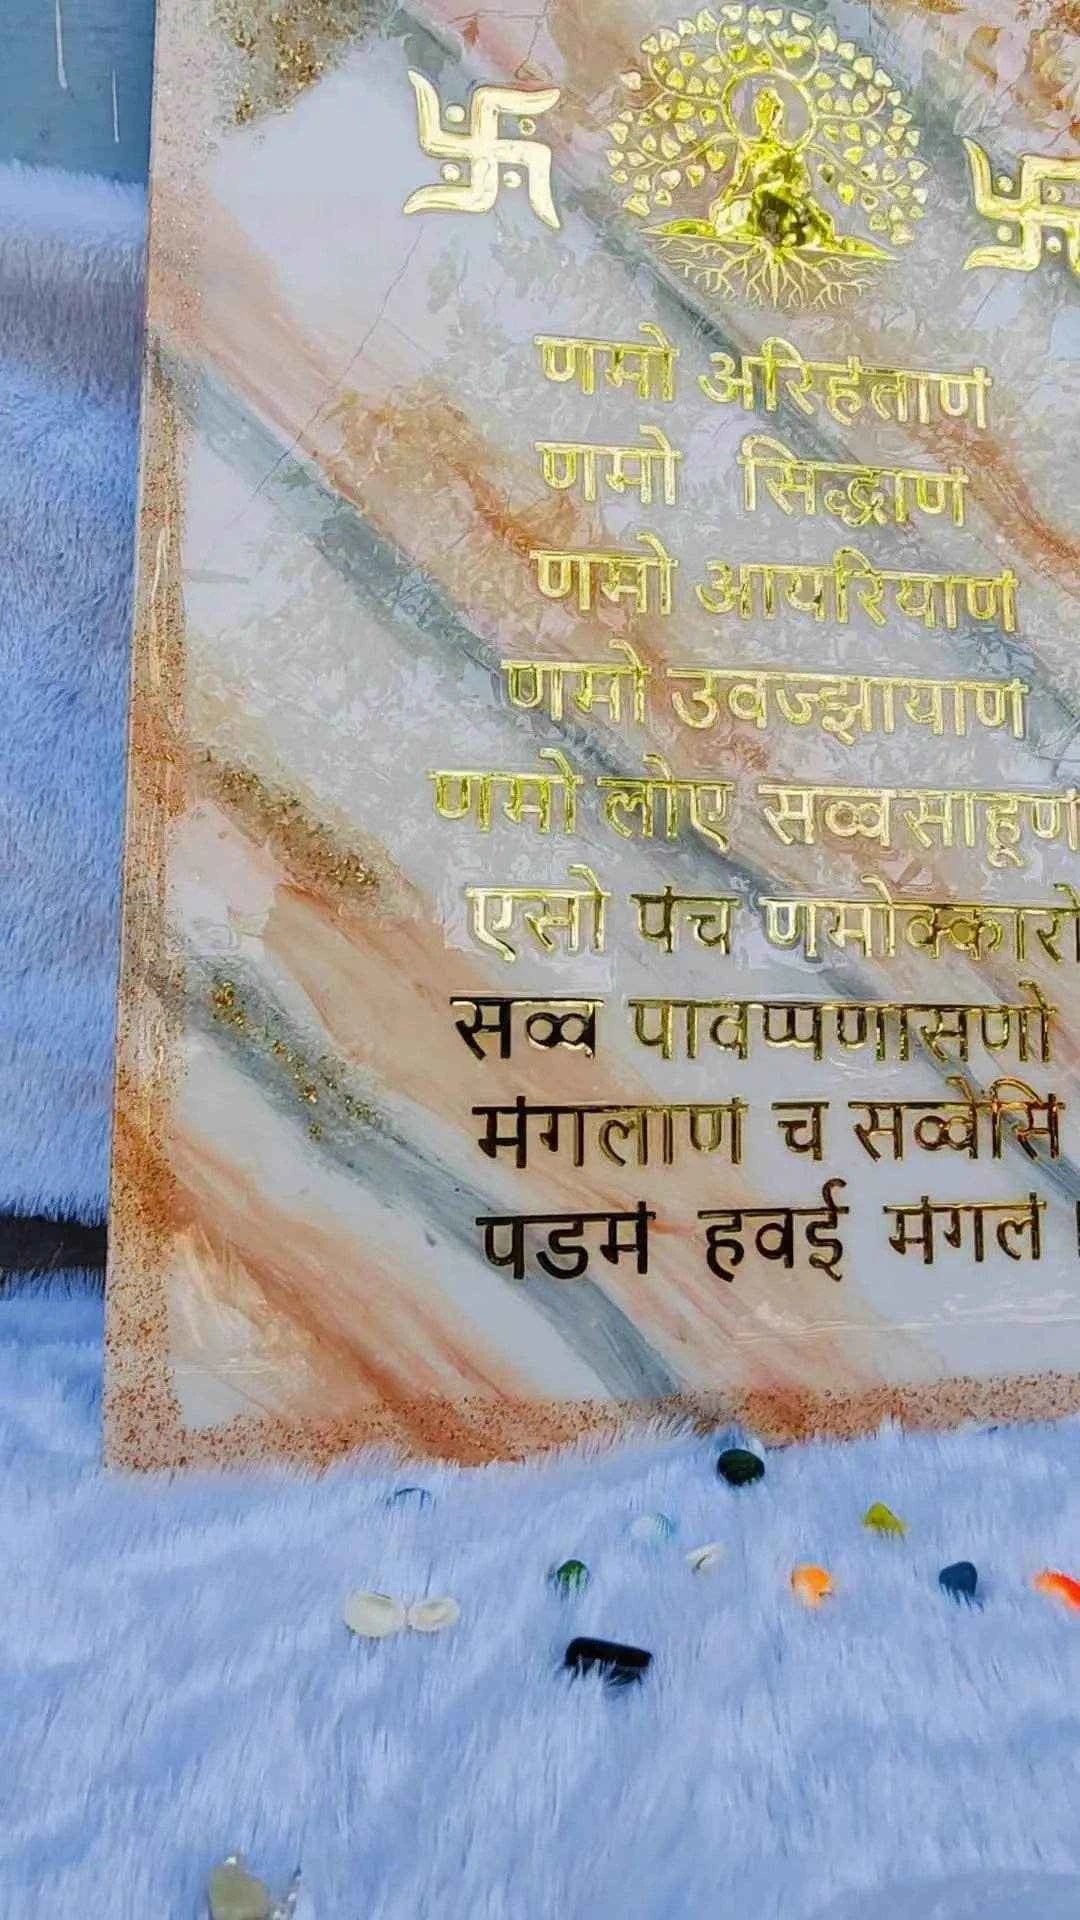 णमो अरिहंताणं
णमो सिद्धाणं
णमो आयरियाणं
णमो उवज्झायाणं
णमो लोए सव्वसाहूणं
एसो पंच णमोक्कारो
सव्व पावप्पणासणो
मंगलाणं च सव्वेसिं
पडमं हवई मंगलं